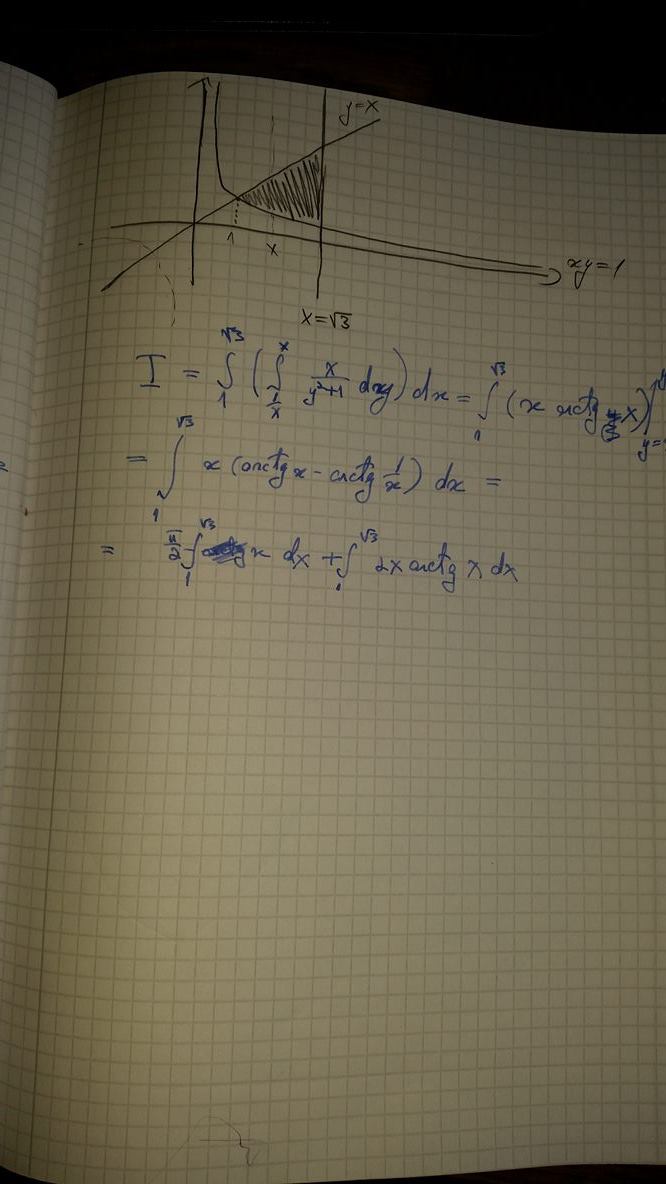 y=x
1 x
xy=1
x=√3
I = ∫₁^√3 (∫_{1/x}^x x/(y²+1) dy) dx = ∫₁^√3 (x arctg
= ∫₁^√3 x (arctg x - arctg 1/x) dx =
= π/2 ∫₁^√3 x dx + ∫₁^√3 2x arctg x dx